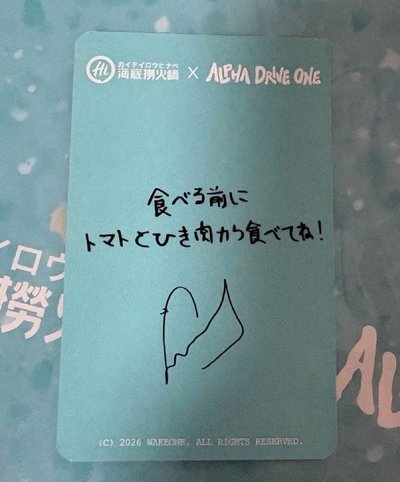 Hi カイテイロウヒナベ 海底撈火鍋 × ALPHA DRIVE ONE
食べる前に
トマトとひき肉から食べてね!
(C) 2026 WAKEONE. ALL RIGHTS RESERVED.
イロウ
撈火
AL